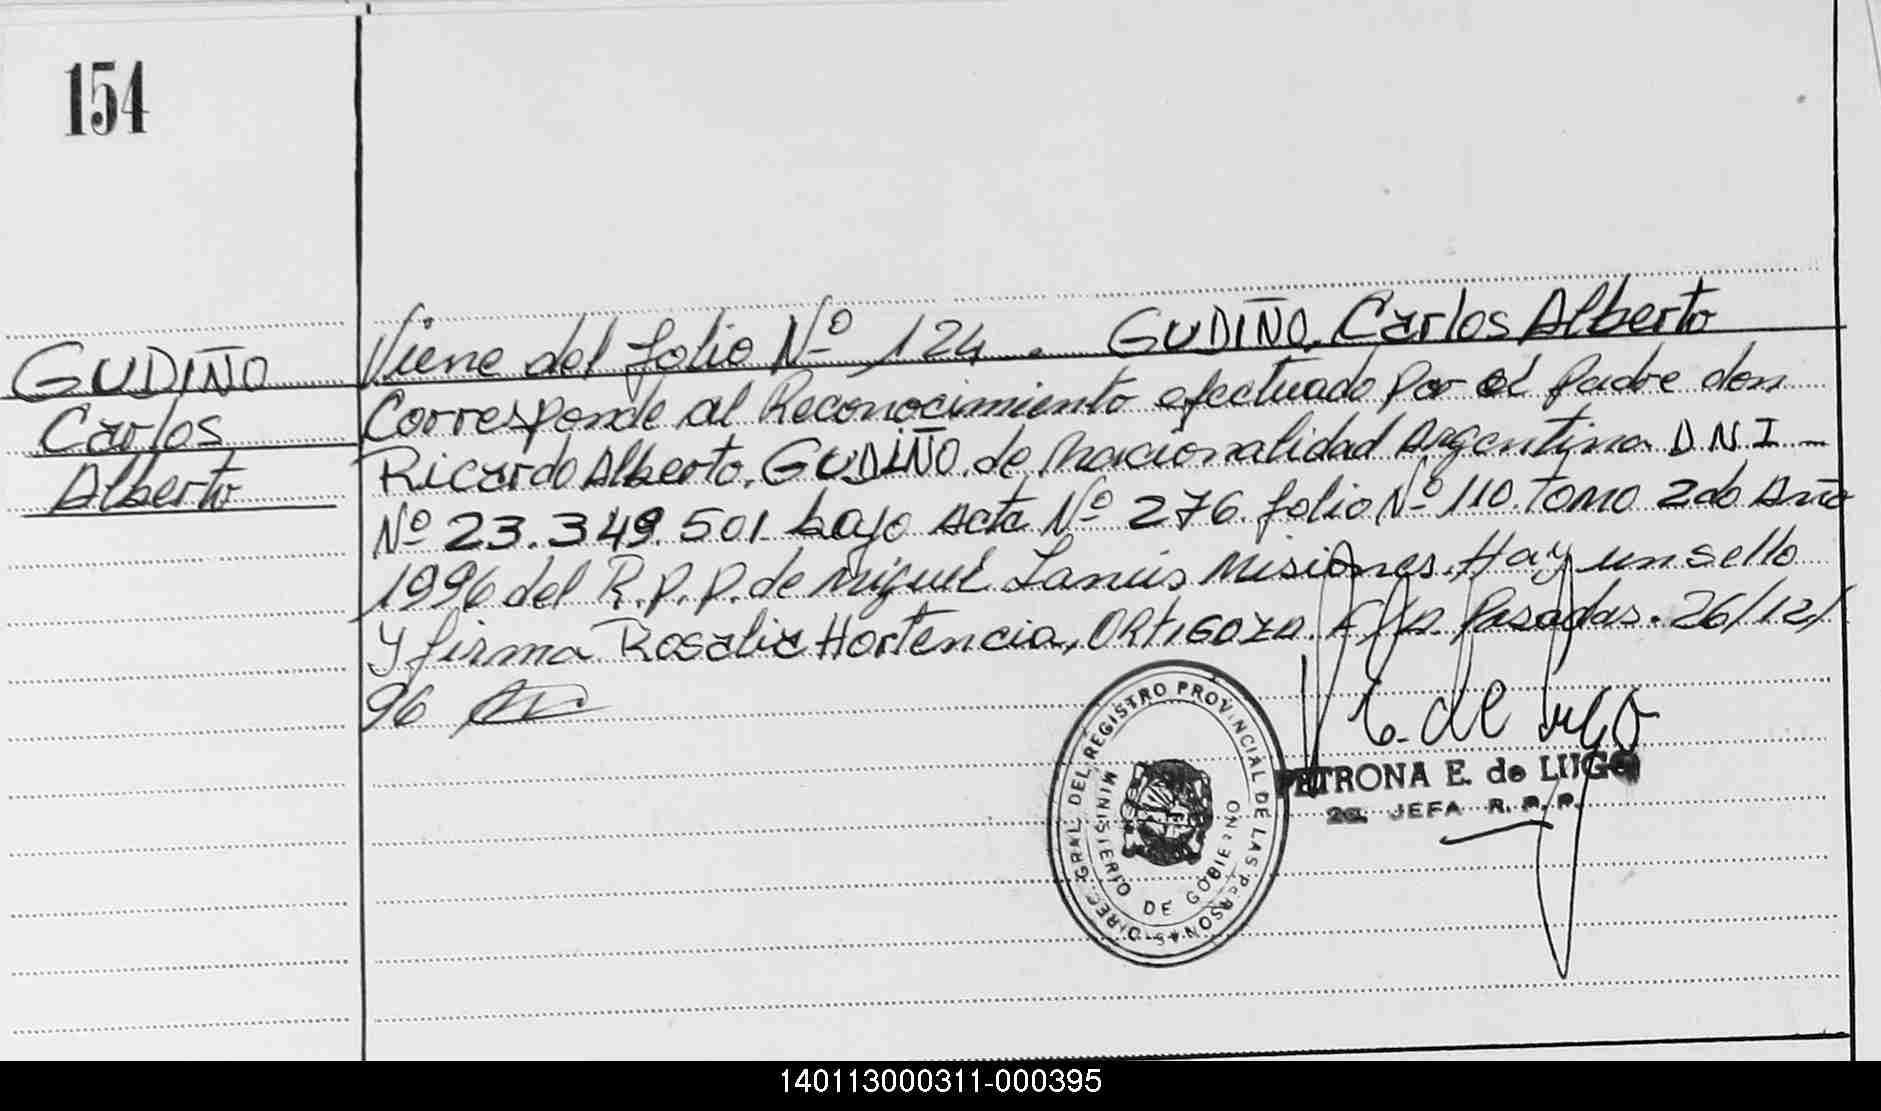 154
GUDIÑO
Carlos
Alberto
Viene del folio Nº 124. GUDIÑO, Carlos Alberto
Corresponde al Reconocimiento efectuado por el padre don
Ricardo Alberto, GUDIÑO, de nacionalidad Argentina D N I -
Nº 23.349.501 bajo acta Nº 276 folio Nº 110. Tomo 2do Año
1996 del R.P.P. de Miguel Lanus Misiones. Hay un sello
y firma Rosalia Hortencia, ORTIGOZA. Posadas. 26/12/
96
E. de Lugo
PETRONA E. de LUGO
2a. JEFA R. P. P.
DIREC. GRAL. DEL REGISTRO PROVINCIAL DE LAS PERSONAS
MINISTERIO DE GOBIERNO
140113000311-000395